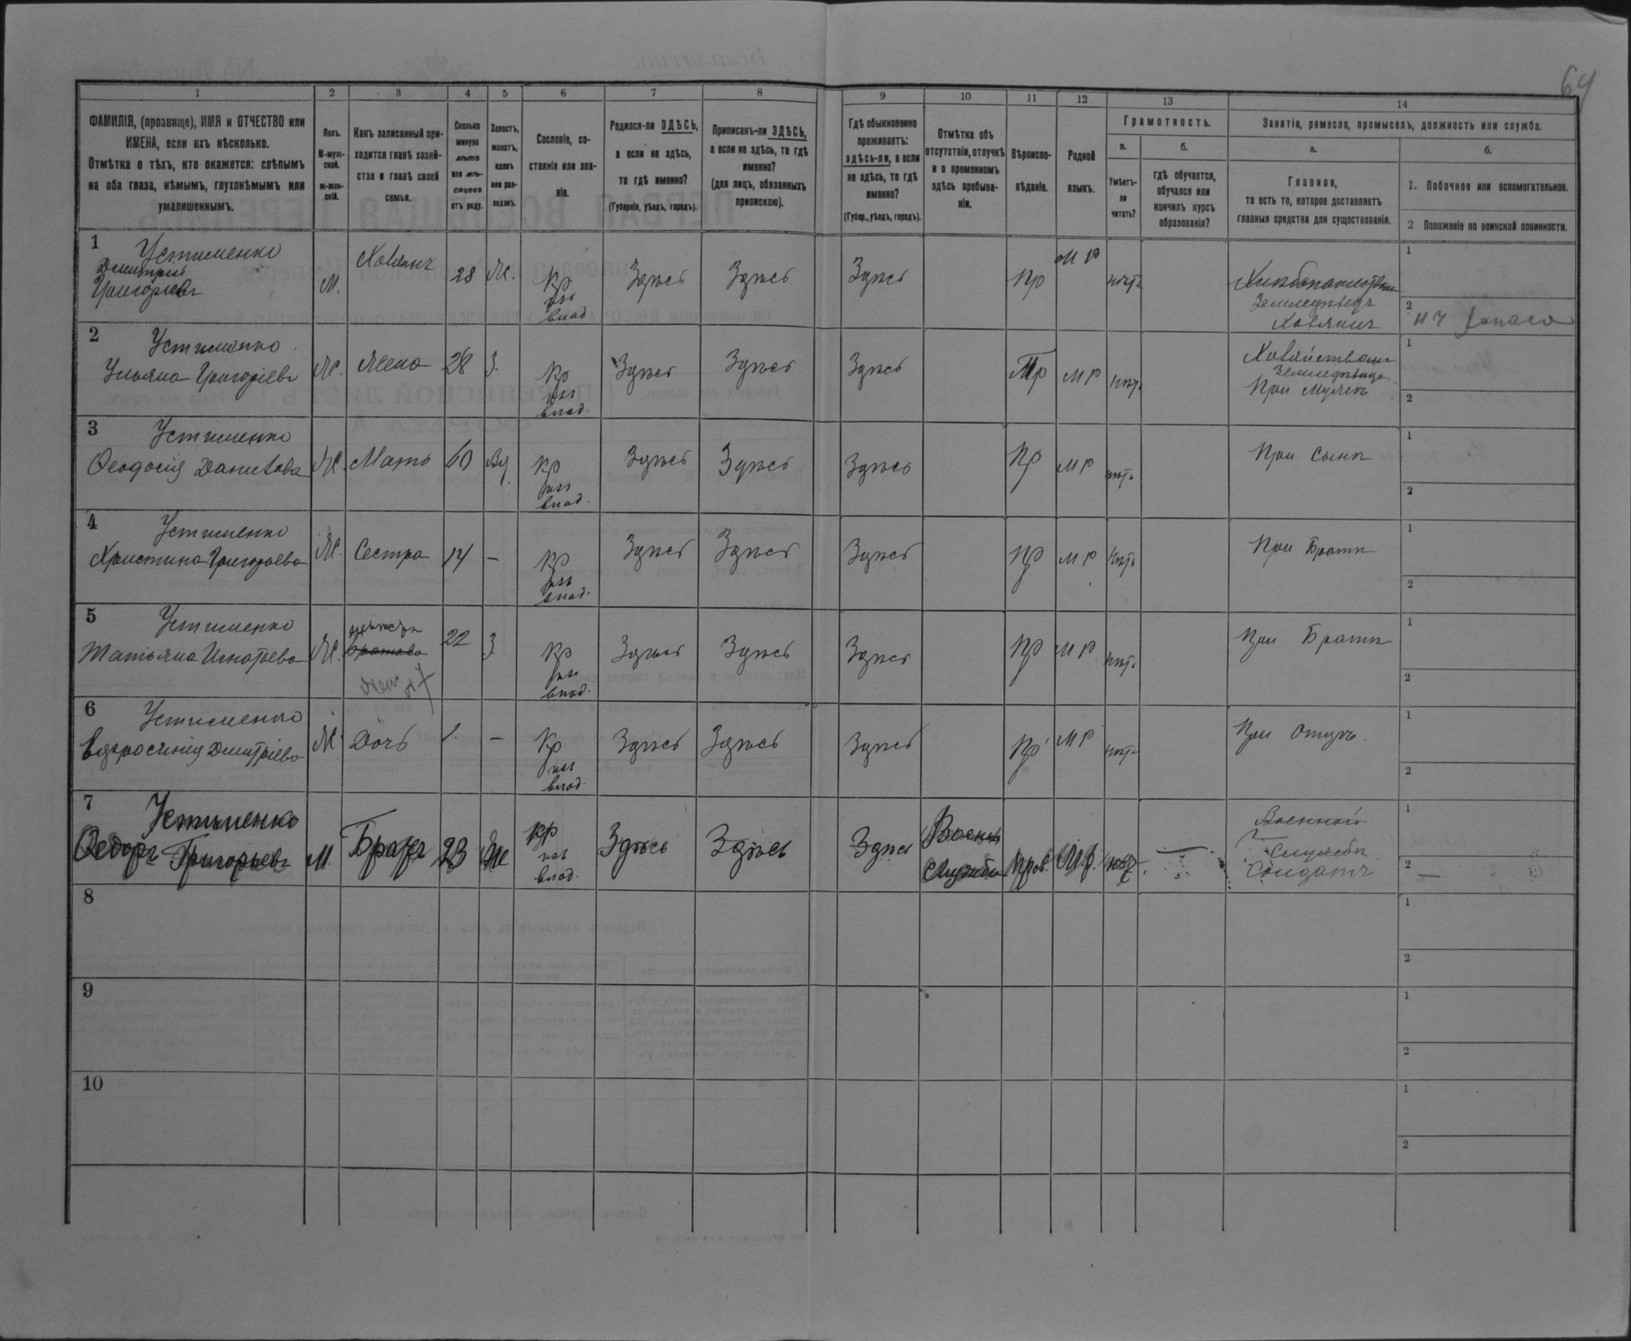 64
1 2 3 4 5 6 7 8 9 10 11 12 13 14
ФАМИЛІЯ, (прозвище), ИМЯ и ОТЧЕСТВО или ИМЕНА, если ихъ нѣсколько.
Отмѣтка о тѣхъ, кто окажется: слѣпымъ на оба глаза, нѣмымъ, глухонѣмымъ или умалишеннымъ.
Полъ.
М-муж-
ской.
ж-жен-
скій.
Какъ записанный при-
ходится главѣ хозяй-
ства и главѣ своей
семьи.
Сколько
минуло
лѣтъ
или мѣ-
сяцевъ
отъ роду.
Холостъ,
женатъ,
вдовъ
или раз-
веденъ.
Сословіе, со-
стояніе или зва-
ніе.
Родился-ли ЗДѢСЬ,
а если не здѣсь,
то гдѣ именно?
(Губернія, уѣздъ, городъ).
Приписанъ-ли ЗДѢСЬ,
а если не здѣсь, то гдѣ
именно?
(для лицъ, обязанныхъ
припискою).
Гдѣ обыкновенно
проживаетъ:
здѣсь-ли, а если
не здѣсь, то гдѣ
именно?
(Губер., уѣздъ, городъ).
Отмѣтка объ
отсутствіи, отлучкѣ
и о временномъ
здѣсь пребыва-
ніи.
Вѣроиспо-
вѣданіе.
Родной
языкъ.
Грамотность.
а.
Умѣетъ-
ли
читать?
б.
гдѣ обучается,
обучался или
кончилъ курсъ
образованія?
Занятіе, ремесло, промыселъ, должность или служба.
а.
Главное,
то есть то, которое доставляетъ
главныя средства для существованія.
б.
1. Побочное или вспомогательное.
2 Положеніе по воинской повинности.
1 Устименко
Дмитрій
Григорьевъ
М. Хозяинъ 28 Ж. Кр
влад Здѣсь Здѣсь Здѣсь Пр МР нѣтъ Хлѣбопашество
Земледѣлецъ
Хозяинъ
1
2
2 Устименко
Ульяна Григоріева
Ж. Жена 28 З. Кр
влад. Здѣсь Здѣсь Здѣсь Пр МР нѣтъ
При мужѣ
1
2
3 Устименко
Ѳеодосія Данилова
Ж. Мать 60 Вд. Кр
влад. Здѣсь Здѣсь Здѣсь Пр МР нѣтъ При сынѣ
1
2
4 Устименко
Христина Григорьева
Ж. Сестра 14 – Кр
влад. Здѣсь Здѣсь Здѣсь Пр МР нѣтъ При Братѣ
1
2
5 Устименко
Татьяна Игнатьева
Ж. 22 З Кр
влад. Здѣсь Здѣсь Здѣсь Пр МР нѣтъ При Братѣ
1
2
6 Устименко
Евфросинія Дмитріева
Ж Дочь 1. – Кр
влад. Здѣсь Здѣсь Здѣсь Пр МР нѣтъ При отцѣ.
1
2
7 Устименко
Ѳедоръ Григорьевъ
М Братъ 23 Же Кр
влад. Здѣсь Здѣсь Здѣсь Военн
служба Прав. М.р. Военной
Службы
Солдатъ
1
2 –
8
1
2
9
1
2
10
1
2